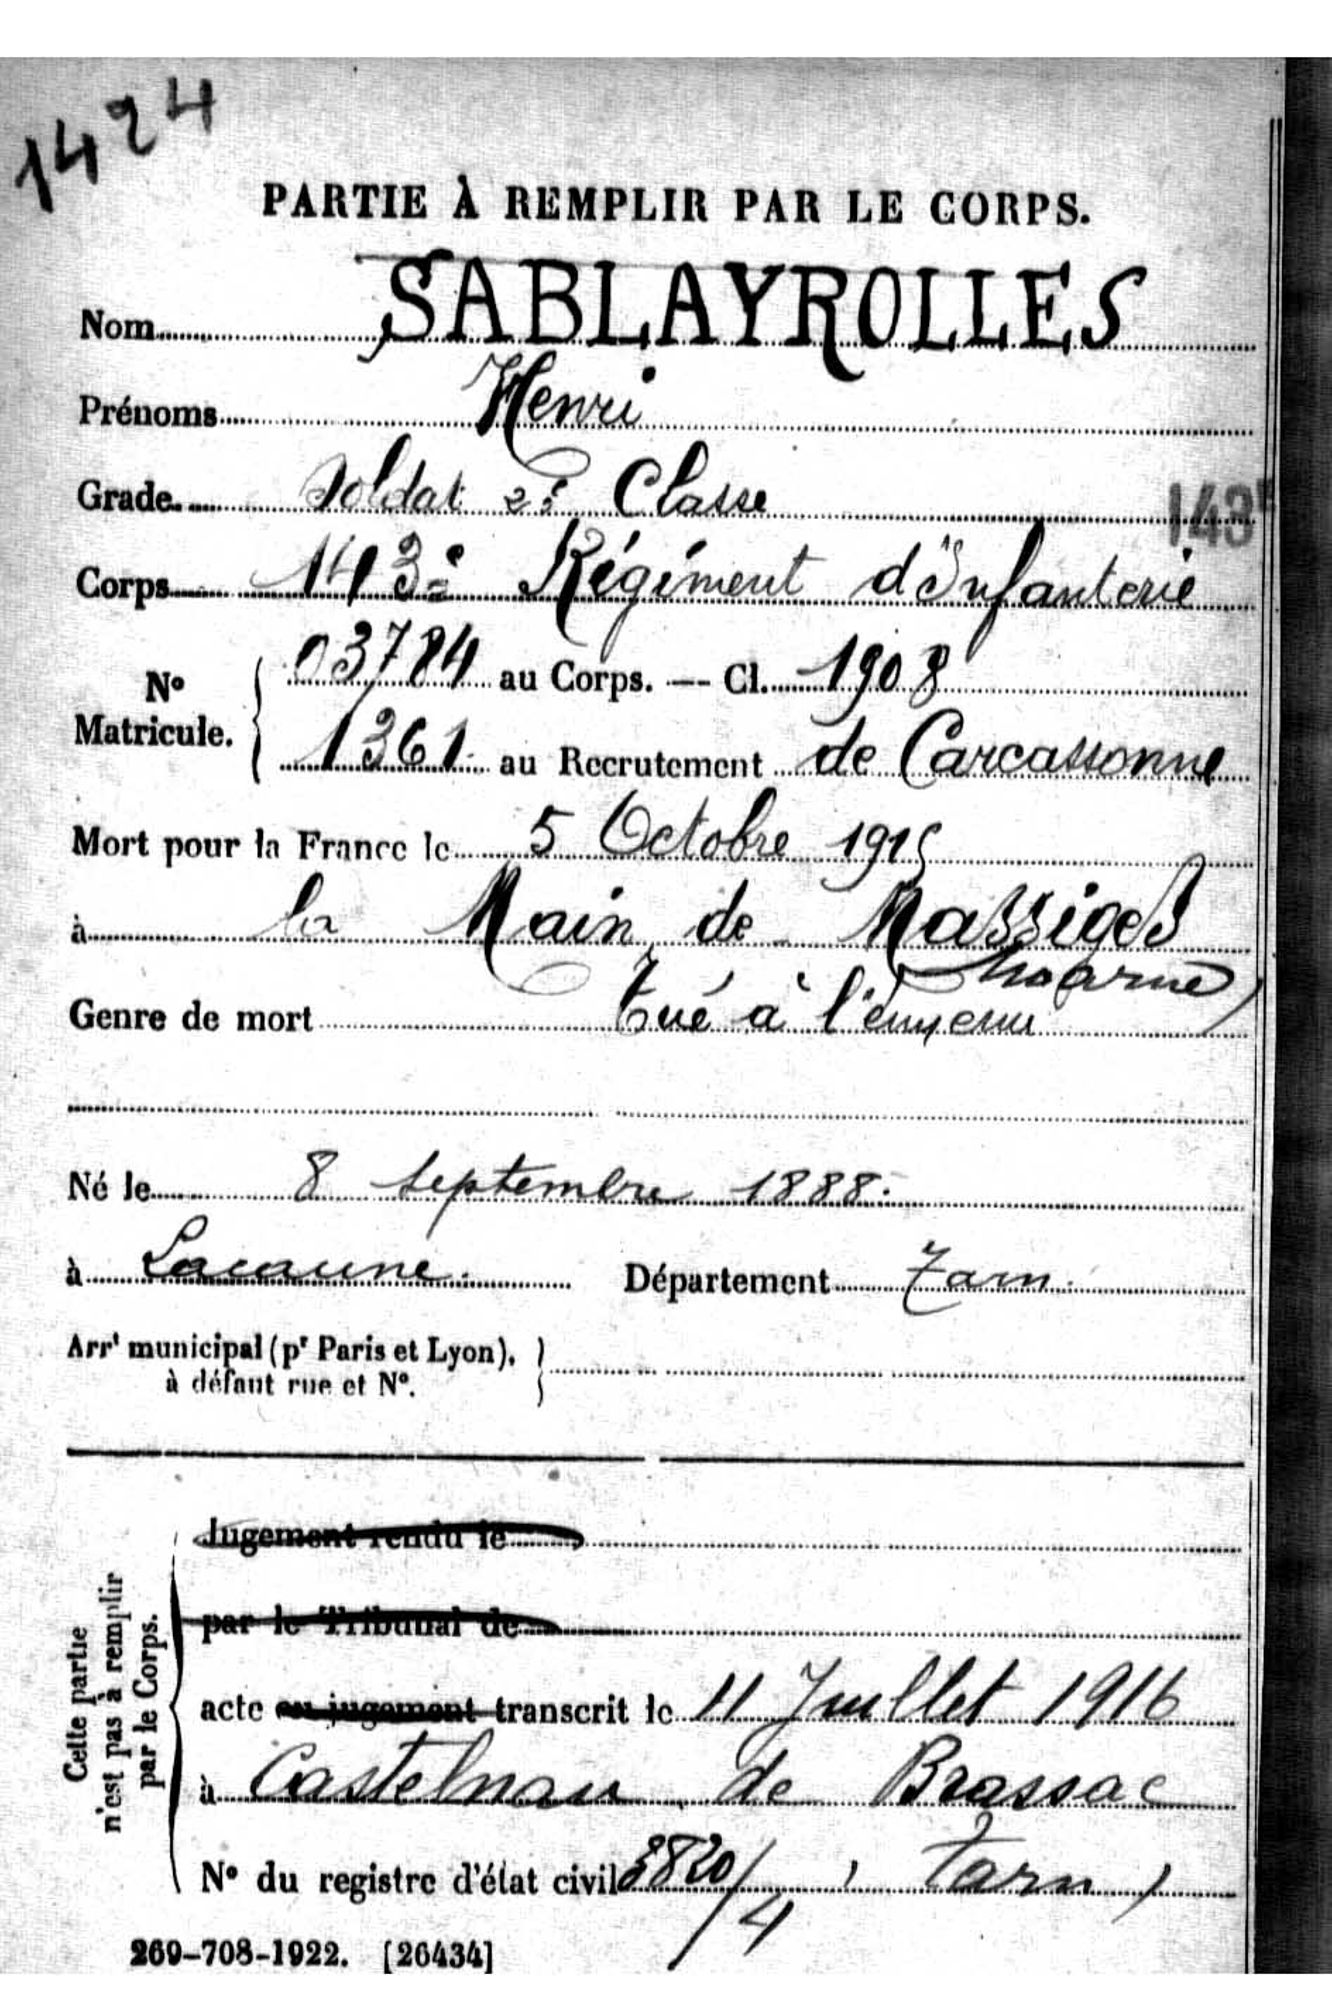 1424
PARTIE À REMPLIR PAR LE CORPS.
Nom SABLAYROLLES
Prénoms Henri
Grade Soldat 2e Classe
143
Corps 143e Régiment d'Infanterie
No Matricule. { 03784 au Corps. — Cl. 1908
1361 au Recrutement de Carcassonne
Mort pour la France le 5 Octobre 1915
à la Main de Massiges
Marne)
Genre de mort Tué à l'ennemi
Né le 8 Septembre 1888.
à Lacaune. Département Tarn.
Arrt municipal (pr Paris et Lyon), }
à défaut rue et No.
Cette partie
n'est pas à remplir
par le Corps.
Jugement rendu le
par le Tribunal de
acte ou jugement transcrit le 11 Juillet 1916
à Castelnau de Brassac
No du registre d'état civil 3820/4 (Tarn)
269-708-1922. [26434]